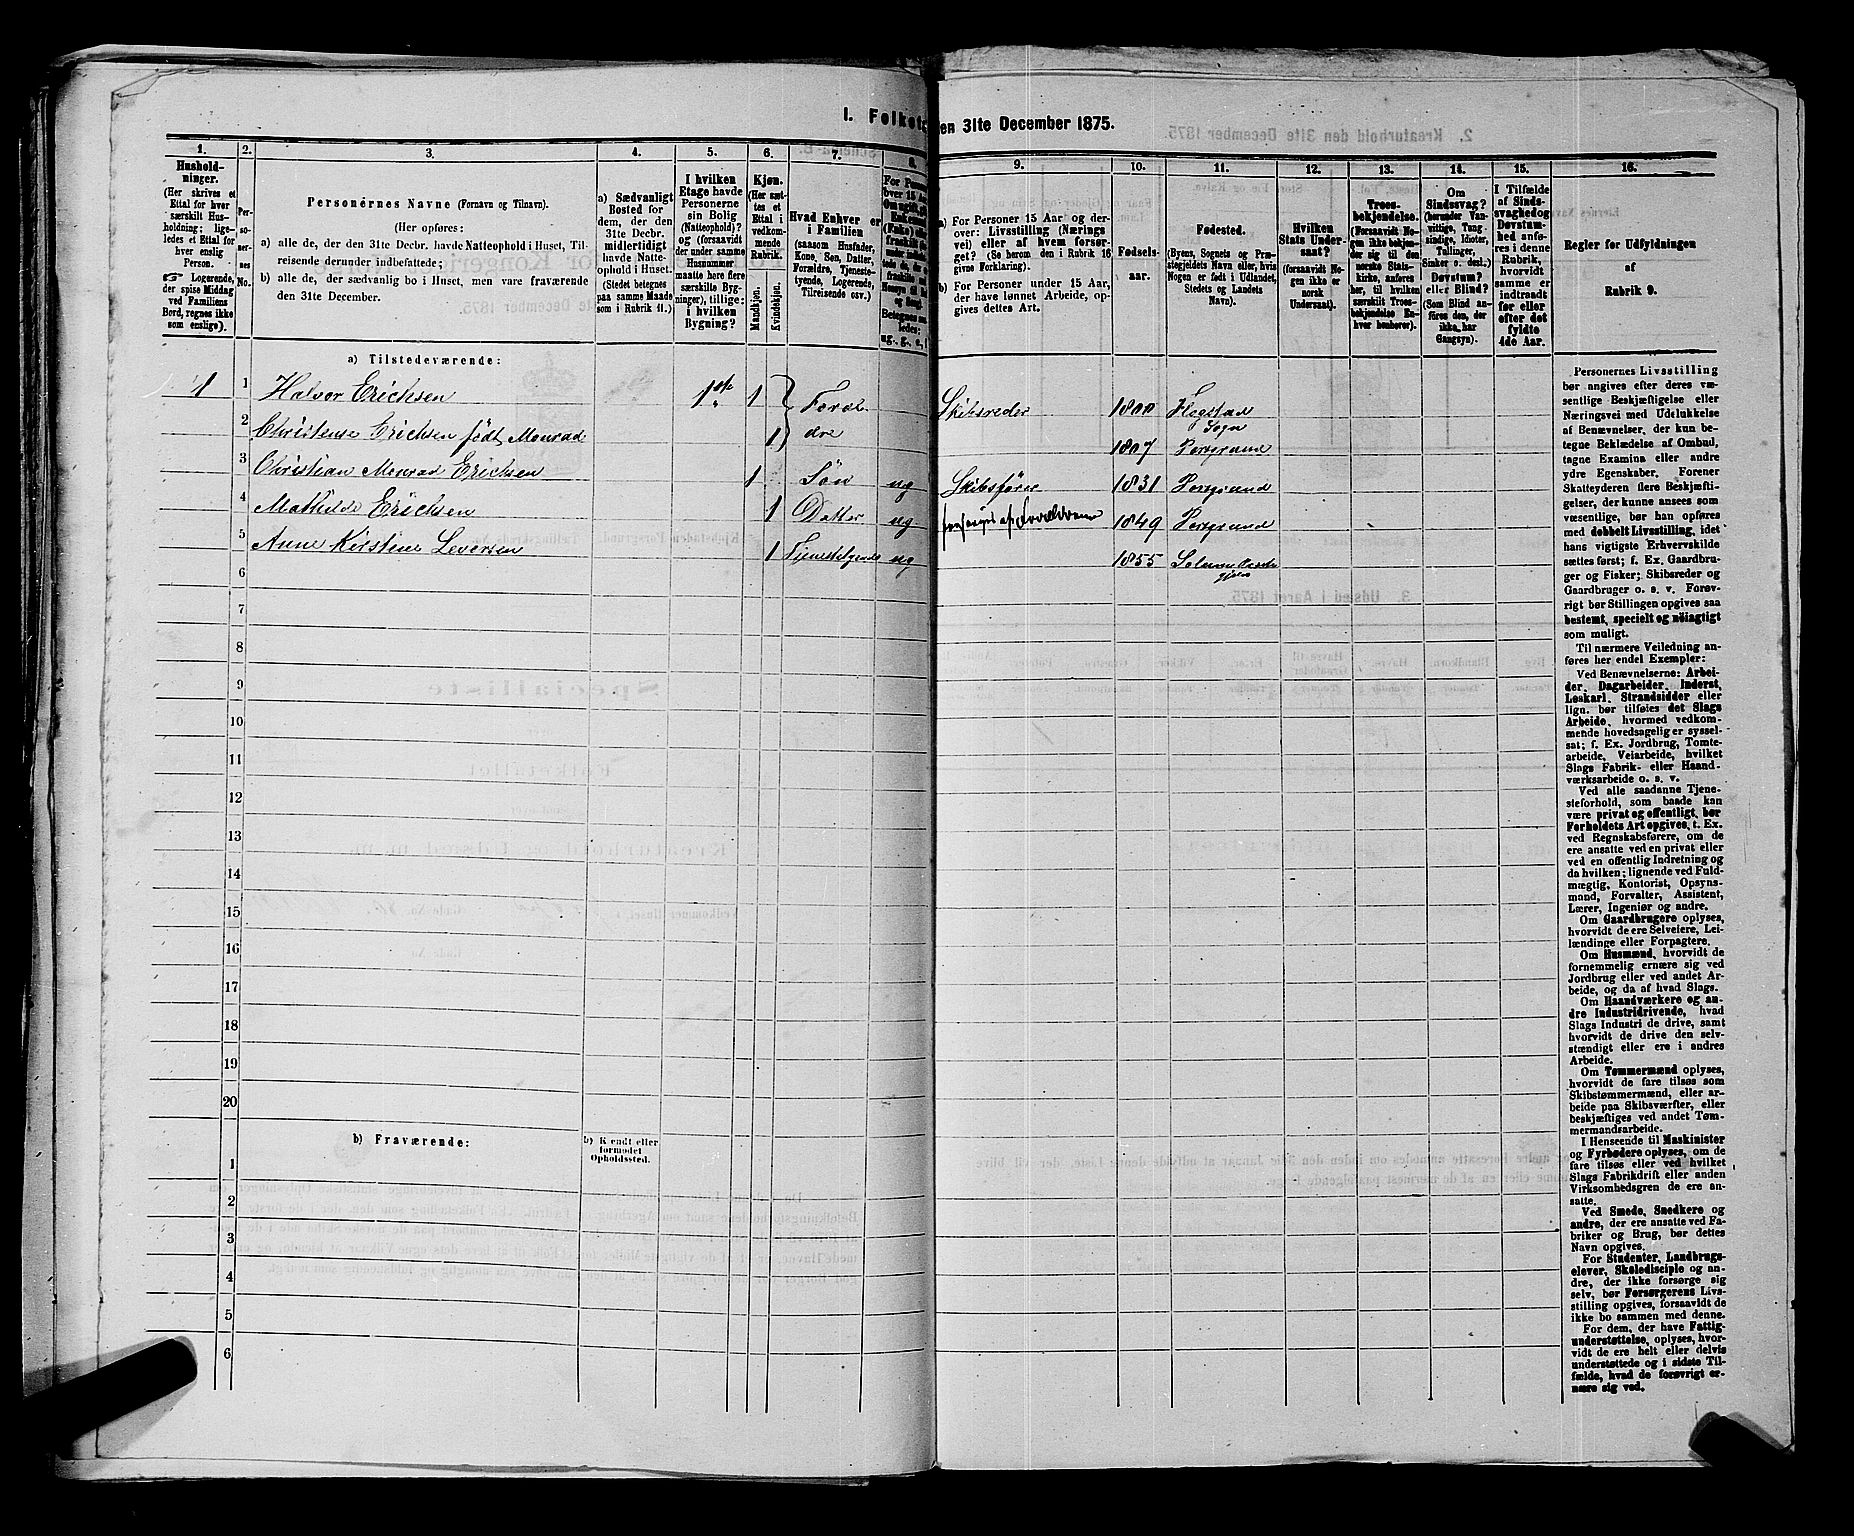 I. Folket
en 31te December 1875.
1.
2.
3.
4.
5.
6.
7.
8.
9.
10.
11.
12.
13.
14.
15.
16.
Hushold-
ninger.
(Her skrives et
Ettal for hver
særskilt Hus-
holdning; lige-
ledes et Ettal for
hver enslig
Person.
☞ Logerende,
der spise Middag
ved Familiens
Bord, regnes ikke
som enslige).
Per-
so-
ner-
nes
No.
Personernes Navne (Fornavn og Tilnavn).
(Her opføres:
a) alle de, der den 31te Decbr. havde Natteophold i Huset, Til-
reisende derunder indbefattede;
b) alle de, der sædvanlig bo i Huset, men vare fraværende
den 31te December.
a) Sædvanligt
Bosted for
dem, der den
31te Decbr.
midlertidigt
havde Natte-
ophold i Huset.
(Stedet betegnes
paa samme Maade
som i Rubrik 11.)
I hvilken
Etage havde
Personerne
sin Bolig
(Natteophold)?
og (forsaavidt
der under samme
Husnummer
maatte være flere
særskilte Byg-
ninger), tillige:
i hvilken
Bygning?
Kjøn.
(Her sæt-
tes et
Ettal i
vedkom-
mende
Rubrik.
Mandkjøn.
Kvindekjøn.
Hvad Enhver er
i Familien
(saasom Husfader,
Kone, Søn, Datter,
Forældre, Tjeneste-
tyende, Logerende,
Tilreisende osv.)
a) For Personer 15 Aar og der-
over: Livsstilling (Nærings
vei) eller af hvem forsør-
get? (Se herom den i Rubrik 16
givne Forklaring).
b) For Personer under 15 Aar,
der have lønnet Arbeide, op-
gives dettes Art.
Fødsels-
aar.
Fødested.
(Byens, Sognets og Præ-
stegjeldets Navn eller, hvis
Nogen er født i Udlandet,
Stedets og Landets
Navn).
Hvilken
Stats Under-
saat?
(forsaavidt No-
gen ikke er
norsk
Undersaat).
Troes-
bekjendelse.
(Forsaavidt No-
gen ikke bekjen-
der sig til den
norske Stats-
kirke, anføres
her, til hvilken
særskilt Troes-
bekjendelse En-
hver henhører).
Om
Sindssvag?
(herunder Van-
vittige, Tung
sindige, Idioter,
Tullinger,
Sinker o. desl.)
Døvstum?
eller Blind?
(Som Blind an-
føres den, der
ikke har
Gangsyn).
I Tilfælde
af Sinds-
svaghed og
Døvstum-
hed anfø-
res i denne
Rubrik,
hvorvidt
samme er
indtraadt
før eller
efter det
fyldte
4de Aar.
Regler for Udfyldningen
af
Rubrik 9.
a) Tilstedeværende:
1 1 Halvor Erichsen 1ste 1 Foræl- Skibsreder 1800 Sogn
2 Christense Erichsen født Monrad 1 dre 1807 Porsgrund
3 Christian Monrad Erichsen 1 Søn ug Skibsfører 1831 Porsgrund
4 Mathilde Erichsen 1 Datter ug forsørges af Forældrene 1849 Porsgrund
5 Anne Kirstine Seversen 1 Tjenestetyende ug 1855
6
7
8
9
10
11
12
13
14
15
16
17
18
19
20
b) Fraværende:
b) Kjendt eller
formodet
Opholdssted.
1
2
3
4
5
6
Personernes Livsstilling
bør angives efter deres væ-
sentlige Beskjæftigelse eller
Næringsvei med Udelukkelse
af Benævnelser, der kun be-
tegne Beklædelse af Ombud,
tagne Examina eller andre
ydre Egenskaber. Forener
Skatteyderen flere Beskjæfti-
gelser, der kunne ansees som
væsentlige, bør han opføres
med dobbelt Livsstilling, idet
hans vigtigste Erhvervskilde
sættes først; f. Ex. Gaardbru-
ger og Fisker; Skibsreder og
Gaardbruger o. s. v. Forøv-
rigt bør Stillingen opgives saa
bestemt, specielt og nøiagtigt
som muligt.
Til nærmere Veiledning an-
føres her endel Exempler:
Ved Benævnelserne: Arbei-
der, Dagarbeider, Inderst,
Løskarl, Strandsidder eller
lign. bør tilføies det Slags
Arbeide, hvormed vedkom-
mende hovedsagelig er syssel-
sat; f. Ex. Jordbrug, Tomte-
arbeide, Veiarbeide, hvilket
Slags Fabrik- eller Haand-
værksarbeide o. s. v.
Ved alle saadanne Tjene-
steforhold, som baade kan
være privat og offentligt, bør
Forholdets Art opgives, t. Ex.
ved Regnskabsførere, om de
ere ansatte ved en privat eller
ved en offentlig Indretning og
da hvilken; lignende ved Fuld-
mægtig, Kontorist, Opsyns-
mand, Forvalter, Assistent,
Lærer, Ingeniør og andre.
Om Gaardbrugere oplyses,
hvorvidt de ere Selveiere, Lei-
lændinge eller Forpagtere.
Om Husmænd, hvorvidt de
fornemmelig ernære sig ved
Jordbrug eller ved andet Ar-
beide, og da af hvad Slags.
Om Haandværkere og an-
dre Industridrivende, hvad
Slags Industri de drive, samt
hvorvidt de drive den selv-
stændigt eller ere i andres
Arbeide.
Om Tømmermænd oplyses,
hvorvidt de fare tilsøs som
Skibstømmermænd, eller ar-
beide paa Skibsværfter, eller
beskjæftiges ved andet Tøm-
mermandsarbeide.
I Henseende til Maskinister
og Fyrbødere oplyses, om de
fare tilsøs eller ved hvilket
Slags Fabrikdrift eller anden
Virksomhedsgren de ere an-
satte.
Ved Smede, Snedkere og
andre, der ere ansatte ved Fa-
briker og Brug, bør dettes
Navn opgives.
For Studenter, Landbrugs-
elever, Skoledisciple og an-
dre, der ikke forsørge sig
selv, bør Forsørgerens Livs-
stilling opgives, forsaavidt de
ikke bo sammen med denne.
For dem, der have Fattig-
understøttelse, oplyses, hvor-
vidt de ere helt eller delvis
understøttede og i sidste Til-
fælde, hvad de forøvrigt er-
nære sig ved.